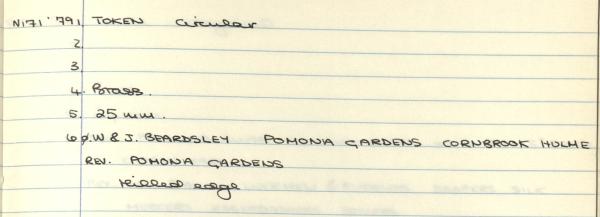 N171'791 TOKEN Circular
2.
3.
4. Brass.
5. 25 mm.
6 W & J. BEARDSLEY POMONA GARDENS CORNBROOK HULME
REV. POMONA GARDENS
Milled edge